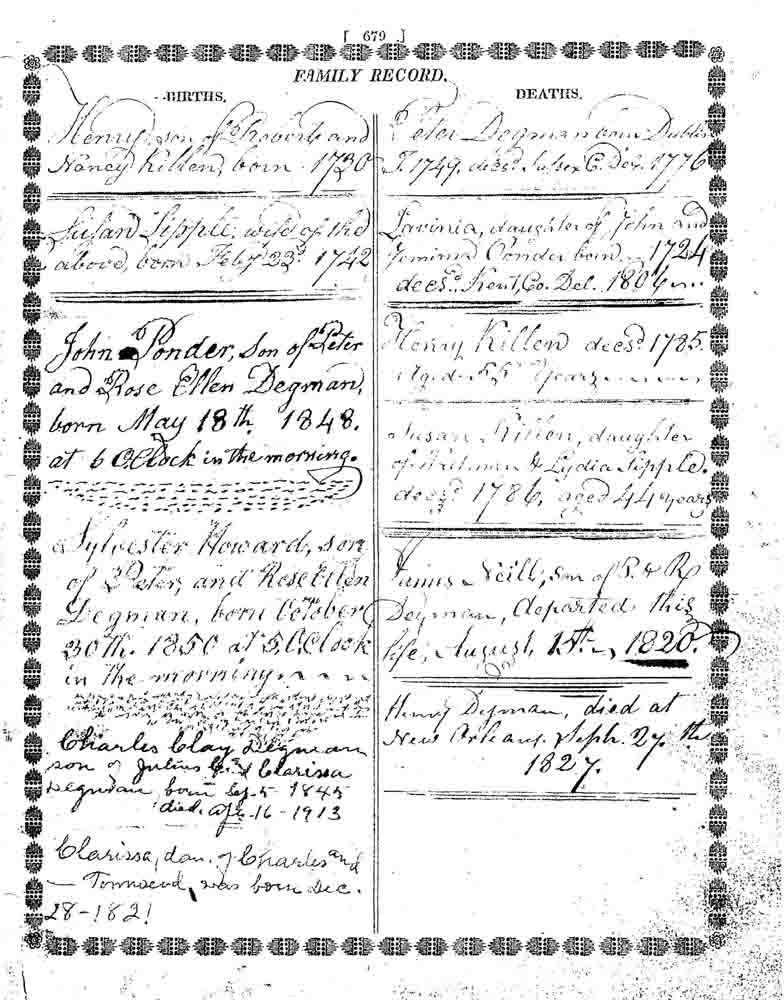 [ 679 ]
FAMILY RECORD.
BIRTHS.
Henry, son of Robert and
Nancy Killen, born 1730
Susan Sipple, wife of the
above, born Feby 23d. 1742
John Ponder, Son of Peter
and Rose Ellen Degman,
born May 18th 1848.
at 6 O.Clock in the morning.
Sylvester Howard, son
of Peter, and Rose Ellen
Degman, born October
30th. 1850 at 5.O.Clock
in the morning
Charles Clay Degman
son of Julius & Clarissa
Degman born Sep. 5 1845
died, 16-1913
Clarissa, dau. of Charles and
— Townsend, was born Dec.
28-1821
DEATHS.
Peter Degman born Dublin
I. 1749. decsd. Sussex C. Del. 1776
Lavinia, daughter of John and
Jemima Ponder born 1724
decsd. Kent, Co. Del. 1806
Henry Killen decsd. 1785.
Aged 55 Years
Susan Killen, daughter
of & Lydia Sipple.
decsd. 1786, aged 44 years
Neill, son of P. & R
Degman, departed this
life, August, 15th 1820.
Henry Degman, died at
New Orleans. Sept. 27 th
1827.